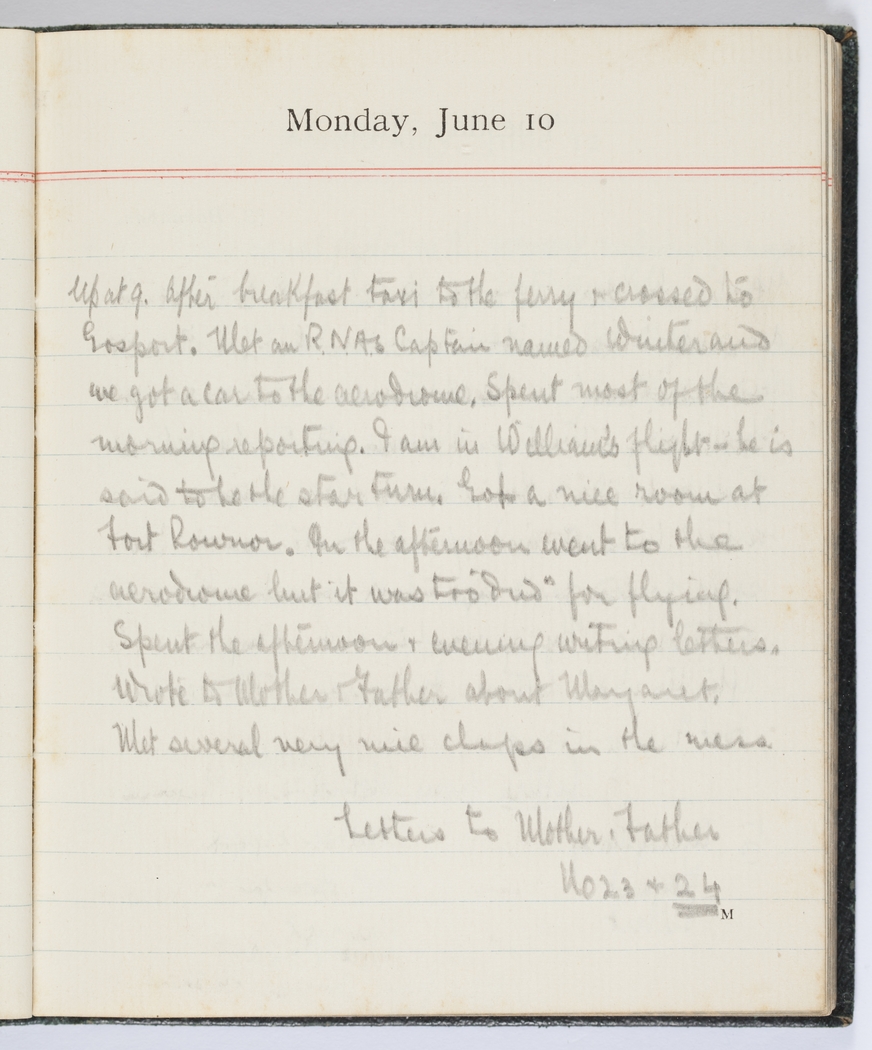 Monday, June 10
Up at 9. After breakfast taxi to the ferry + crossed to
Gosport. Met an R.N.A.S Captain named Winter and
we got a car to the aerodrome. Spent most of the
morning reporting. I am in William's flight - he is
said to be the star turn. Got a nice room at
Fort Rowner. In the afternoon went to the
aerodrome but it was too "dud" for flying.
Spent the afternoon + evening writing letters.
Wrote to Mother + Father about Margaret.
Met several very nice chaps in the mess
Letters to Mother + Father
No 23 + 24
M